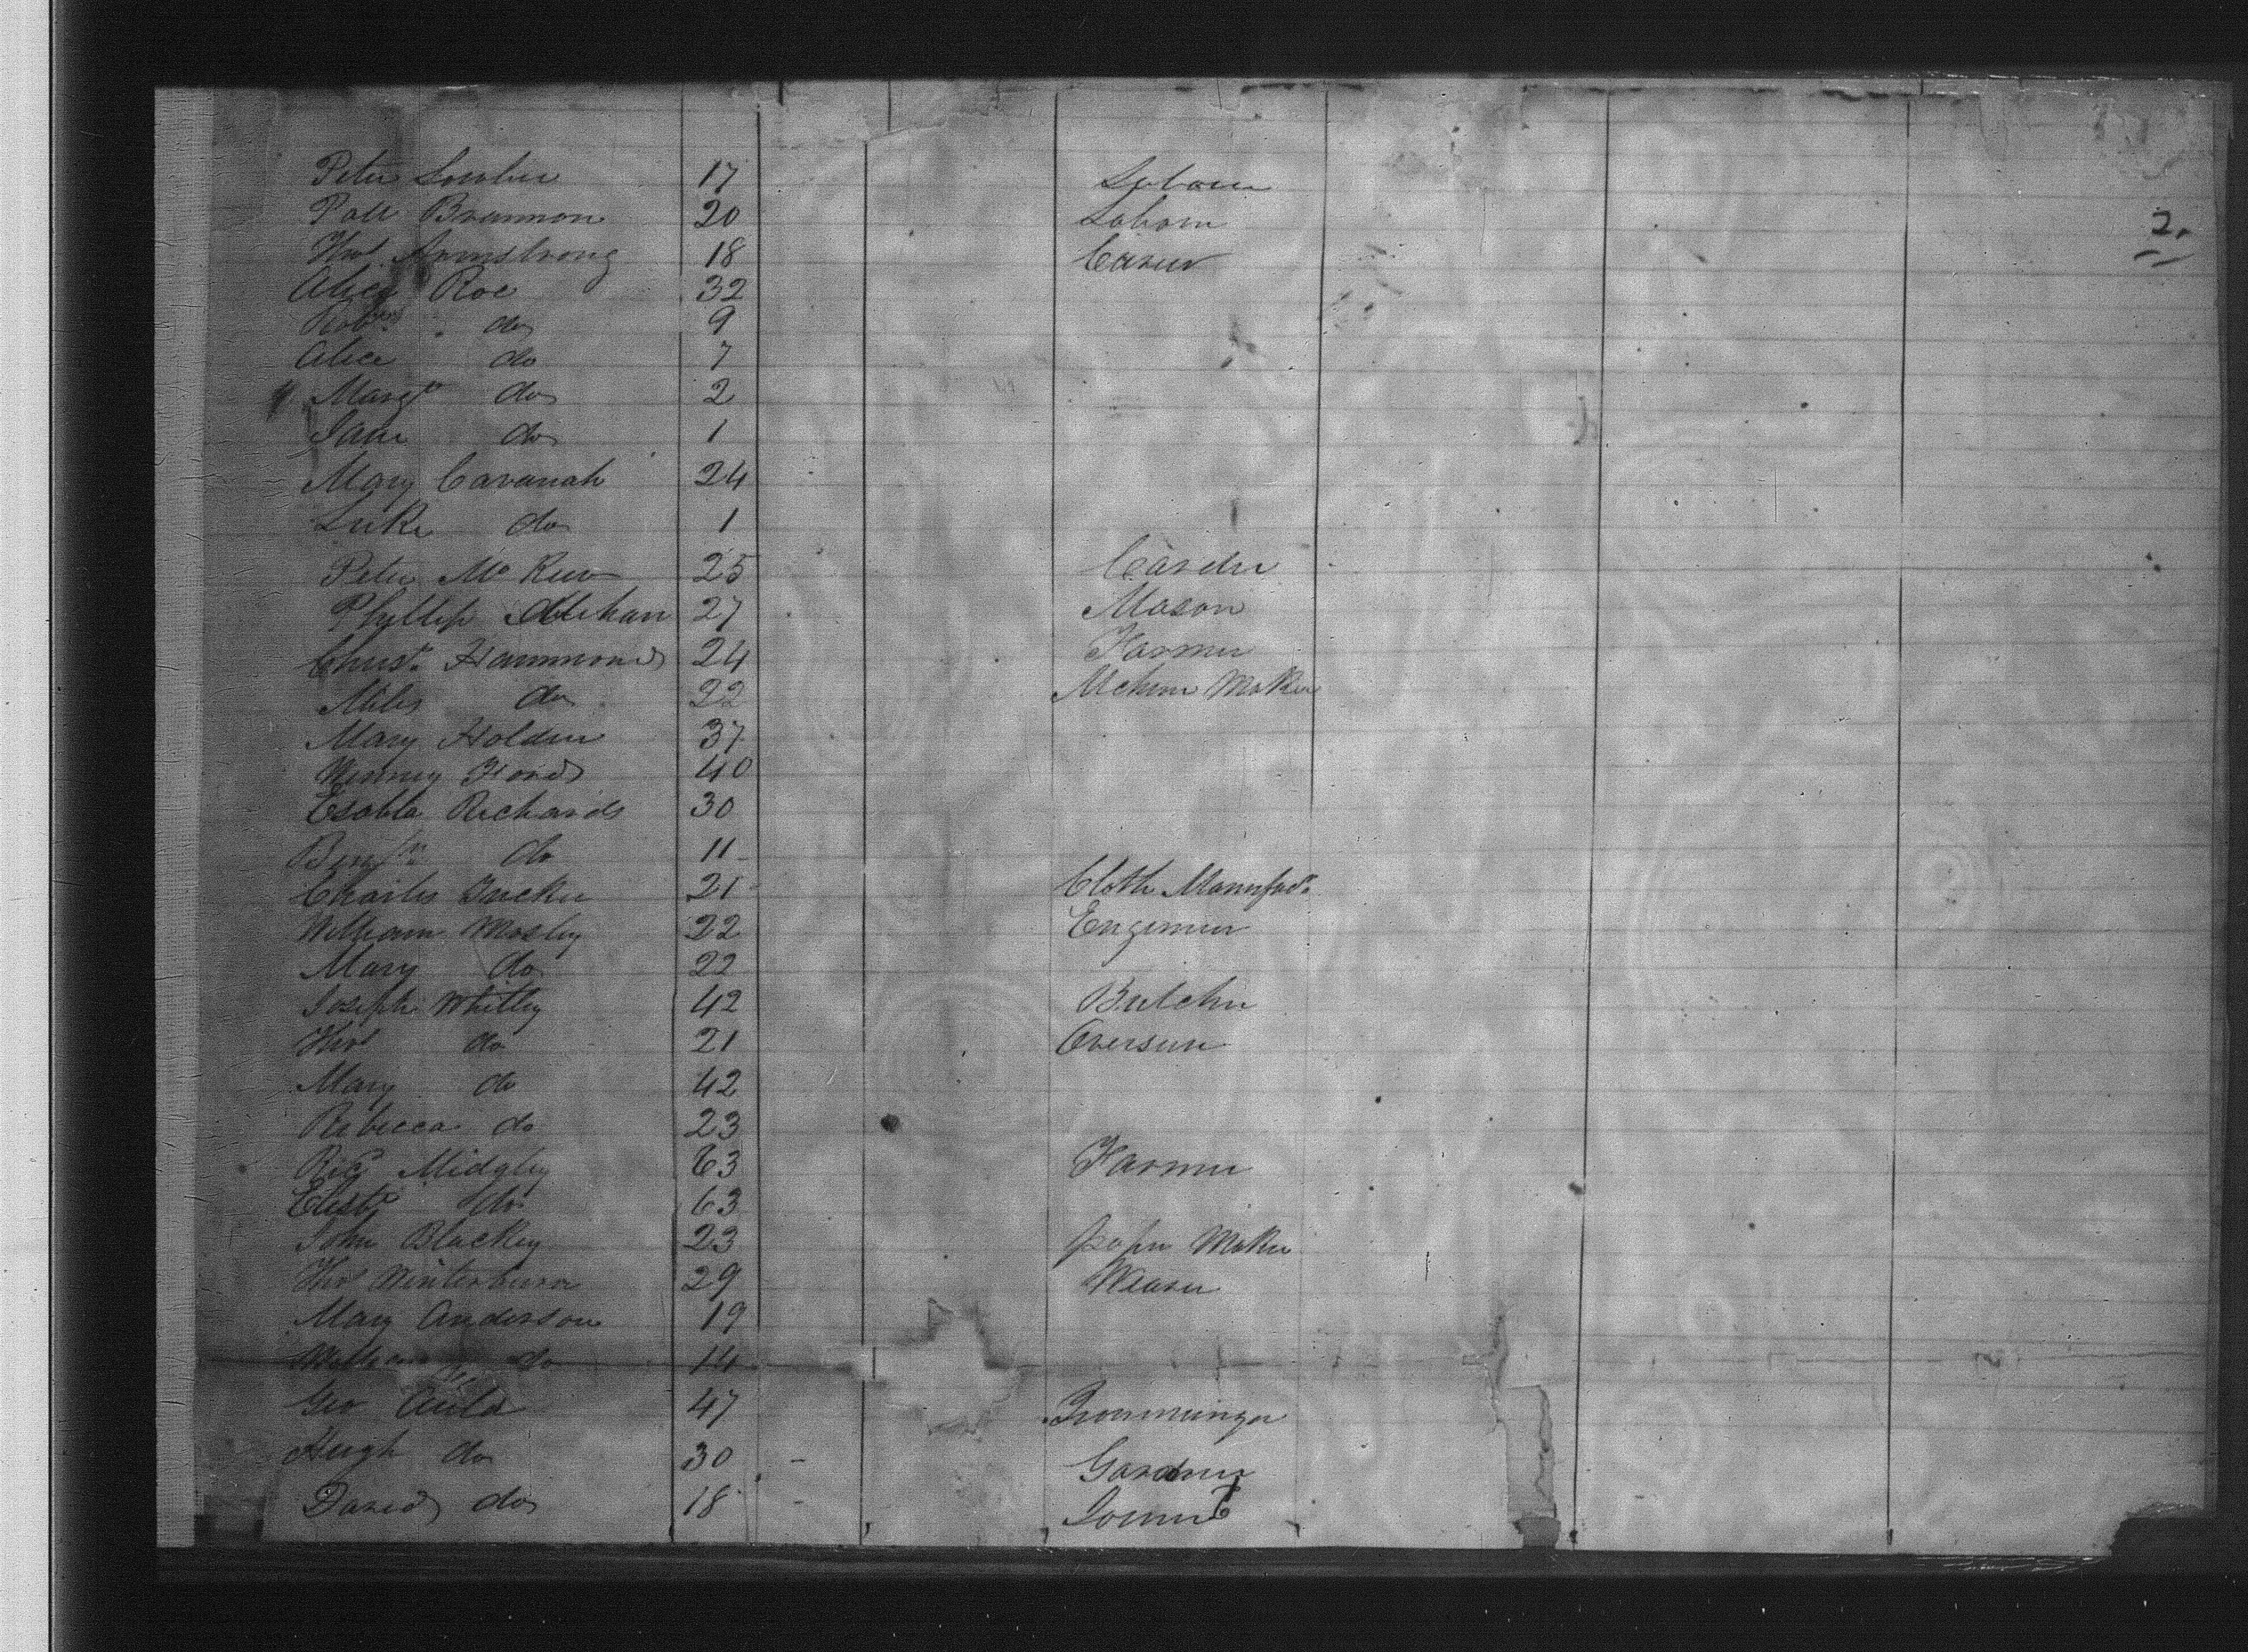 Peter 17
Patt Brannon 20
2.
Thos Armstrong 18 Carver
Alice Roe 32
Robt do 9
Alice do 7
Margt do 2
Jane do 1
Mary Cavanah 24
Luke do 1
Peter Mc 25 Carder
Phillip Mehan 27 Mason
Christr Hammond 24 Farmer
Miles do 22 Mchine Maker
Mary Holden 37
Winney Ford 40
Esabla Richards 30
Benjn do 11
Charles Tucker 21 Cloth Manufacr
William Mosley 22 Engineer
Mary do 22
Joseph Whitley 42 Butcher
Thos do 21 Overseer
Mary do 42
Rebecca do 23
Ricd Midgley 63 Farmer
Elisbt do 63
John Blackey 23 paper Maker
Thos Winterburn 29 Weaver
Mary Anderson 19
William do 14
Geo Auld 47 Ironmunger
Hugh do 30 Gardner
David do 18 Joiner